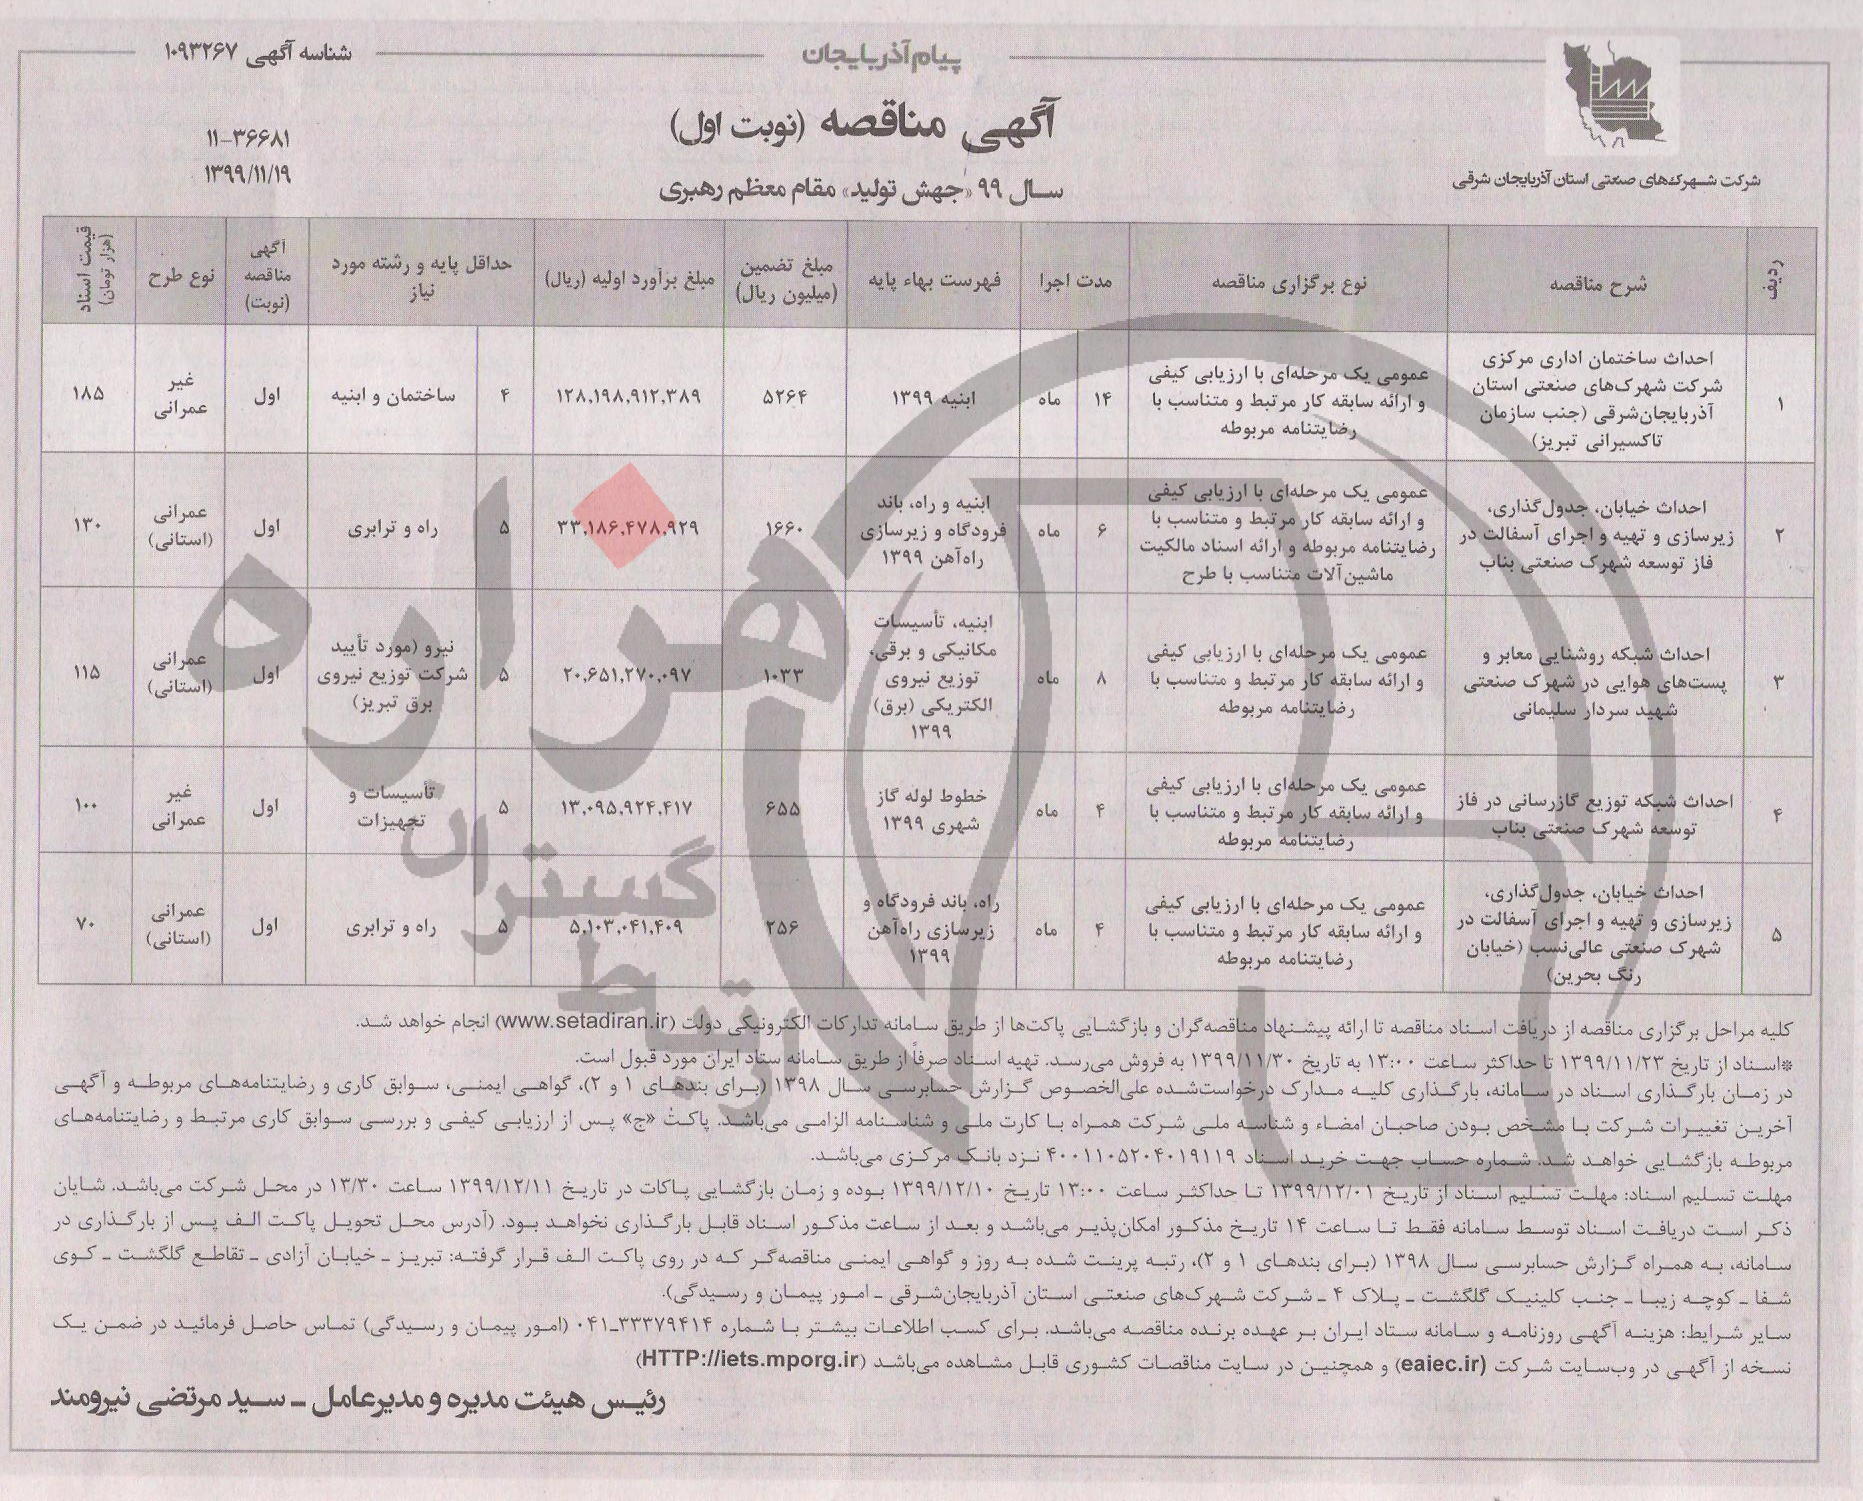 پیام آذربایجان
شناسه آگهی ۱۰۹۳۲۶۷
آگهی مناقصه (نوبت اول)
۱۱-۳۶۶۸۱
۱۳۹۹/۱۱/۱۹
سال ۹۹ «جهش تولید» مقام معظم رهبری
شرکت شهرک‌های صنعتی استان آذربایجان شرقی
ردیف | شرح مناقصه | نوع برگزاری مناقصه | مدت اجرا | فهرست بهاء پایه | مبلغ تضمین (میلیون ریال) | مبلغ برآورد اولیه (ریال) | حداقل پایه و رشته مورد نیاز | آگهی مناقصه (نوبت) | نوع طرح | قیمت اسناد (هزار تومان)
۱ | احداث ساختمان اداری مرکزی شرکت شهرک‌های صنعتی استان آذربایجان‌شرقی (جنب سازمان تاکسیرانی تبریز) | عمومی یک مرحله‌ای با ارزیابی کیفی و ارائه سابقه کار مرتبط و متناسب با رضایتنامه مربوطه | ۱۴ | ماه | ابنیه ۱۳۹۹ | ۵۲۶۴ | ۱۲۸,۱۹۸,۹۱۲,۳۸۹ | ۴ | ساختمان و ابنیه | اول | غیر عمرانی | ۱۸۵
۲ | احداث خیابان، جدول‌گذاری، زیرسازی و تهیه و اجرای آسفالت در فاز توسعه شهرک صنعتی بناب | عمومی یک مرحله‌ای با ارزیابی کیفی و ارائه سابقه کار مرتبط و متناسب با رضایتنامه مربوطه و ارائه اسناد مالکیت ماشین‌آلات متناسب با طرح | ۶ | ماه | ابنیه و راه، باند فرودگاه و زیرسازی راه‌آهن ۱۳۹۹ | ۱۶۶۰ | ۳۳,۱۸۶,۴۷۸,۹۲۹ | ۵ | راه و ترابری | اول | عمرانی (استانی) | ۱۳۰
۳ | احداث شبکه روشنایی معابر و پست‌های هوایی در شهرک صنعتی شهید سردار سلیمانی | عمومی یک مرحله‌ای با ارزیابی کیفی و ارائه سابقه کار مرتبط و متناسب با رضایتنامه مربوطه | ۸ | ماه | ابنیه، تأسیسات مکانیکی و برقی، توزیع نیروی الکتریکی (برق) ۱۳۹۹ | ۱۰۳۳ | ۲۰,۶۵۱,۲۷۰,۰۹۷ | ۵ | نیرو (مورد تأیید شرکت توزیع نیروی برق تبریز) | اول | عمرانی (استانی) | ۱۱۵
۴ | احداث شبکه توزیع گازرسانی در فاز توسعه شهرک صنعتی بناب | عمومی یک مرحله‌ای با ارزیابی کیفی و ارائه سابقه کار مرتبط و متناسب با رضایتنامه مربوطه | ۴ | ماه | خطوط لوله گاز شهری ۱۳۹۹ | ۶۵۵ | ۱۳,۰۹۵,۹۲۴,۴۱۷ | ۵ | تأسیسات و تجهیزات | اول | غیر عمرانی | ۱۰۰
۵ | احداث خیابان، جدول‌گذاری، زیرسازی و تهیه و اجرای آسفالت در شهرک صنعتی عالی‌نسب (خیابان رنگ بحرین) | عمومی یک مرحله‌ای با ارزیابی کیفی و ارائه سابقه کار مرتبط و متناسب با رضایتنامه مربوطه | ۴ | ماه | راه، باند فرودگاه و زیرسازی راه‌آهن ۱۳۹۹ | ۲۵۶ | ۵,۱۰۳,۰۴۱,۴۰۹ | ۵ | راه و ترابری | اول | عمرانی (استانی) | ۷۰
کلیه مراحل برگزاری مناقصه از دریافت اسناد مناقصه تا ارائه پیشنهاد مناقصه‌گران و بازگشایی پاکت‌ها از طریق سامانه تدارکات الکترونیکی دولت (www.setadiran.ir) انجام خواهد شد.
*اسناد از تاریخ ۱۳۹۹/۱۱/۲۳ تا حداکثر ساعت ۱۳:۰۰ به تاریخ ۱۳۹۹/۱۱/۳۰ به فروش می‌رسد. تهیه اسناد صرفاً از طریق سامانه ستاد ایران مورد قبول است.
در زمان بارگذاری اسناد در سامانه، بارگذاری کلیه مدارک درخواست‌شده علی‌الخصوص گزارش حسابرسی سال ۱۳۹۸ (برای بندهای ۱ و ۲)، گواهی ایمنی، سوابق کاری و رضایتنامه‌های مربوطه و آگهی
آخرین تغییرات شرکت با مشخص بودن صاحبان امضاء و شناسه ملی شرکت همراه با کارت ملی و شناسنامه الزامی می‌باشد. پاکت «ج» پس از ارزیابی کیفی و بررسی سوابق کاری مرتبط و رضایتنامه‌های
مربوطه بازگشایی خواهد شد. شماره حساب جهت خرید اسناد ۴۰۰۱۱۰۵۲۰۴۰۱۹۱۱۹ نزد بانک مرکزی می‌باشد.
مهلت تسلیم اسناد: مهلت تسلیم اسناد از تاریخ ۱۳۹۹/۱۲/۰۱ تا حداکثر ساعت ۱۳:۰۰ تاریخ ۱۳۹۹/۱۲/۱۰ بوده و زمان بازگشایی پاکات در تاریخ ۱۳۹۹/۱۲/۱۱ ساعت ۱۳/۳۰ در محل شرکت می‌باشد. شایان
ذکر است دریافت اسناد توسط سامانه فقط تا ساعت ۱۴ تاریخ مذکور امکان‌پذیر می‌باشد و بعد از ساعت مذکور اسناد قابل بارگذاری نخواهد بود. (آدرس محل تحویل پاکت الف پس از بارگذاری در
سامانه، به همراه گزارش حسابرسی سال ۱۳۹۸ (برای بندهای ۱ و ۲)، رتبه پرینت شده به روز و گواهی ایمنی مناقصه‌گر که در روی پاکت الف قرار گرفته: تبریز ـ خیابان آزادی ـ تقاطع گلگشت ـ کوی
شفا ـ کوچه زیبا ـ جنب کلینیک گلگشت ـ پلاک ۴ ـ شرکت شهرک‌های صنعتی استان آذربایجان‌شرقی ـ امور پیمان و رسیدگی).
سایر شرایط: هزینه آگهی روزنامه و سامانه ستاد ایران بر عهده برنده مناقصه می‌باشد. برای کسب اطلاعات بیشتر با شماره ۳۳۳۷۹۴۱۴ـ۰۴۱ (امور پیمان و رسیدگی) تماس حاصل فرمائید در ضمن یک
نسخه از آگهی در وب‌سایت شرکت (eaiec.ir) و همچنین در سایت مناقصات کشوری قابل مشاهده می‌باشد (HTTP://iets.mporg.ir)
رئیس هیئت مدیره و مدیرعامل ـ سید مرتضی نیرومند
هزاره
گستران
ارتباط